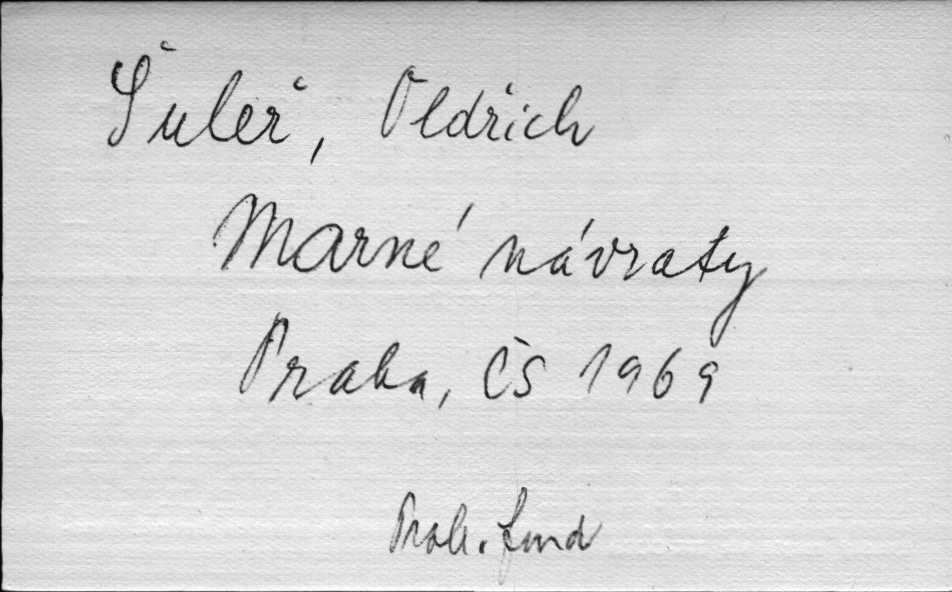 Šuleř, Oldřich
Marné návraty
Praha, ČS 1969
fond